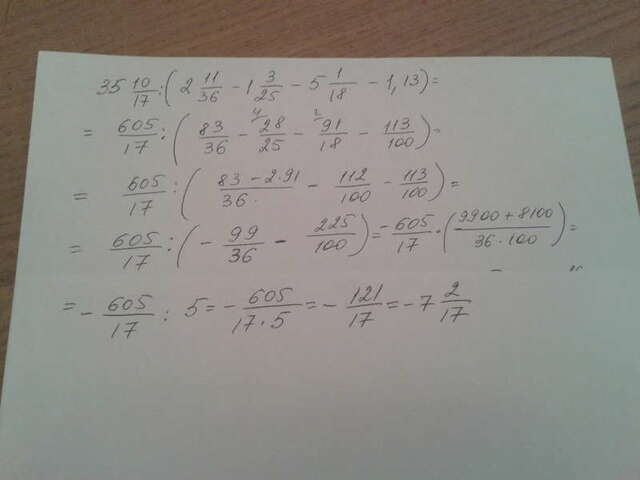 35 10/17 : (2 11/36 - 1 3/25 - 5 1/18 - 1,13) =
= 605/17 : (83/36 - 28/25 - 91/18 - 113/100) =
= 605/17 : (83-2·91/36 - 112/100 - 113/100) =
= 605/17 : (- 99/36 - 225/100) = -605/17 · (9900+8100/36·100) =
= - 605/17 : 5 = - 605/17·5 = - 121/17 = -7 2/17